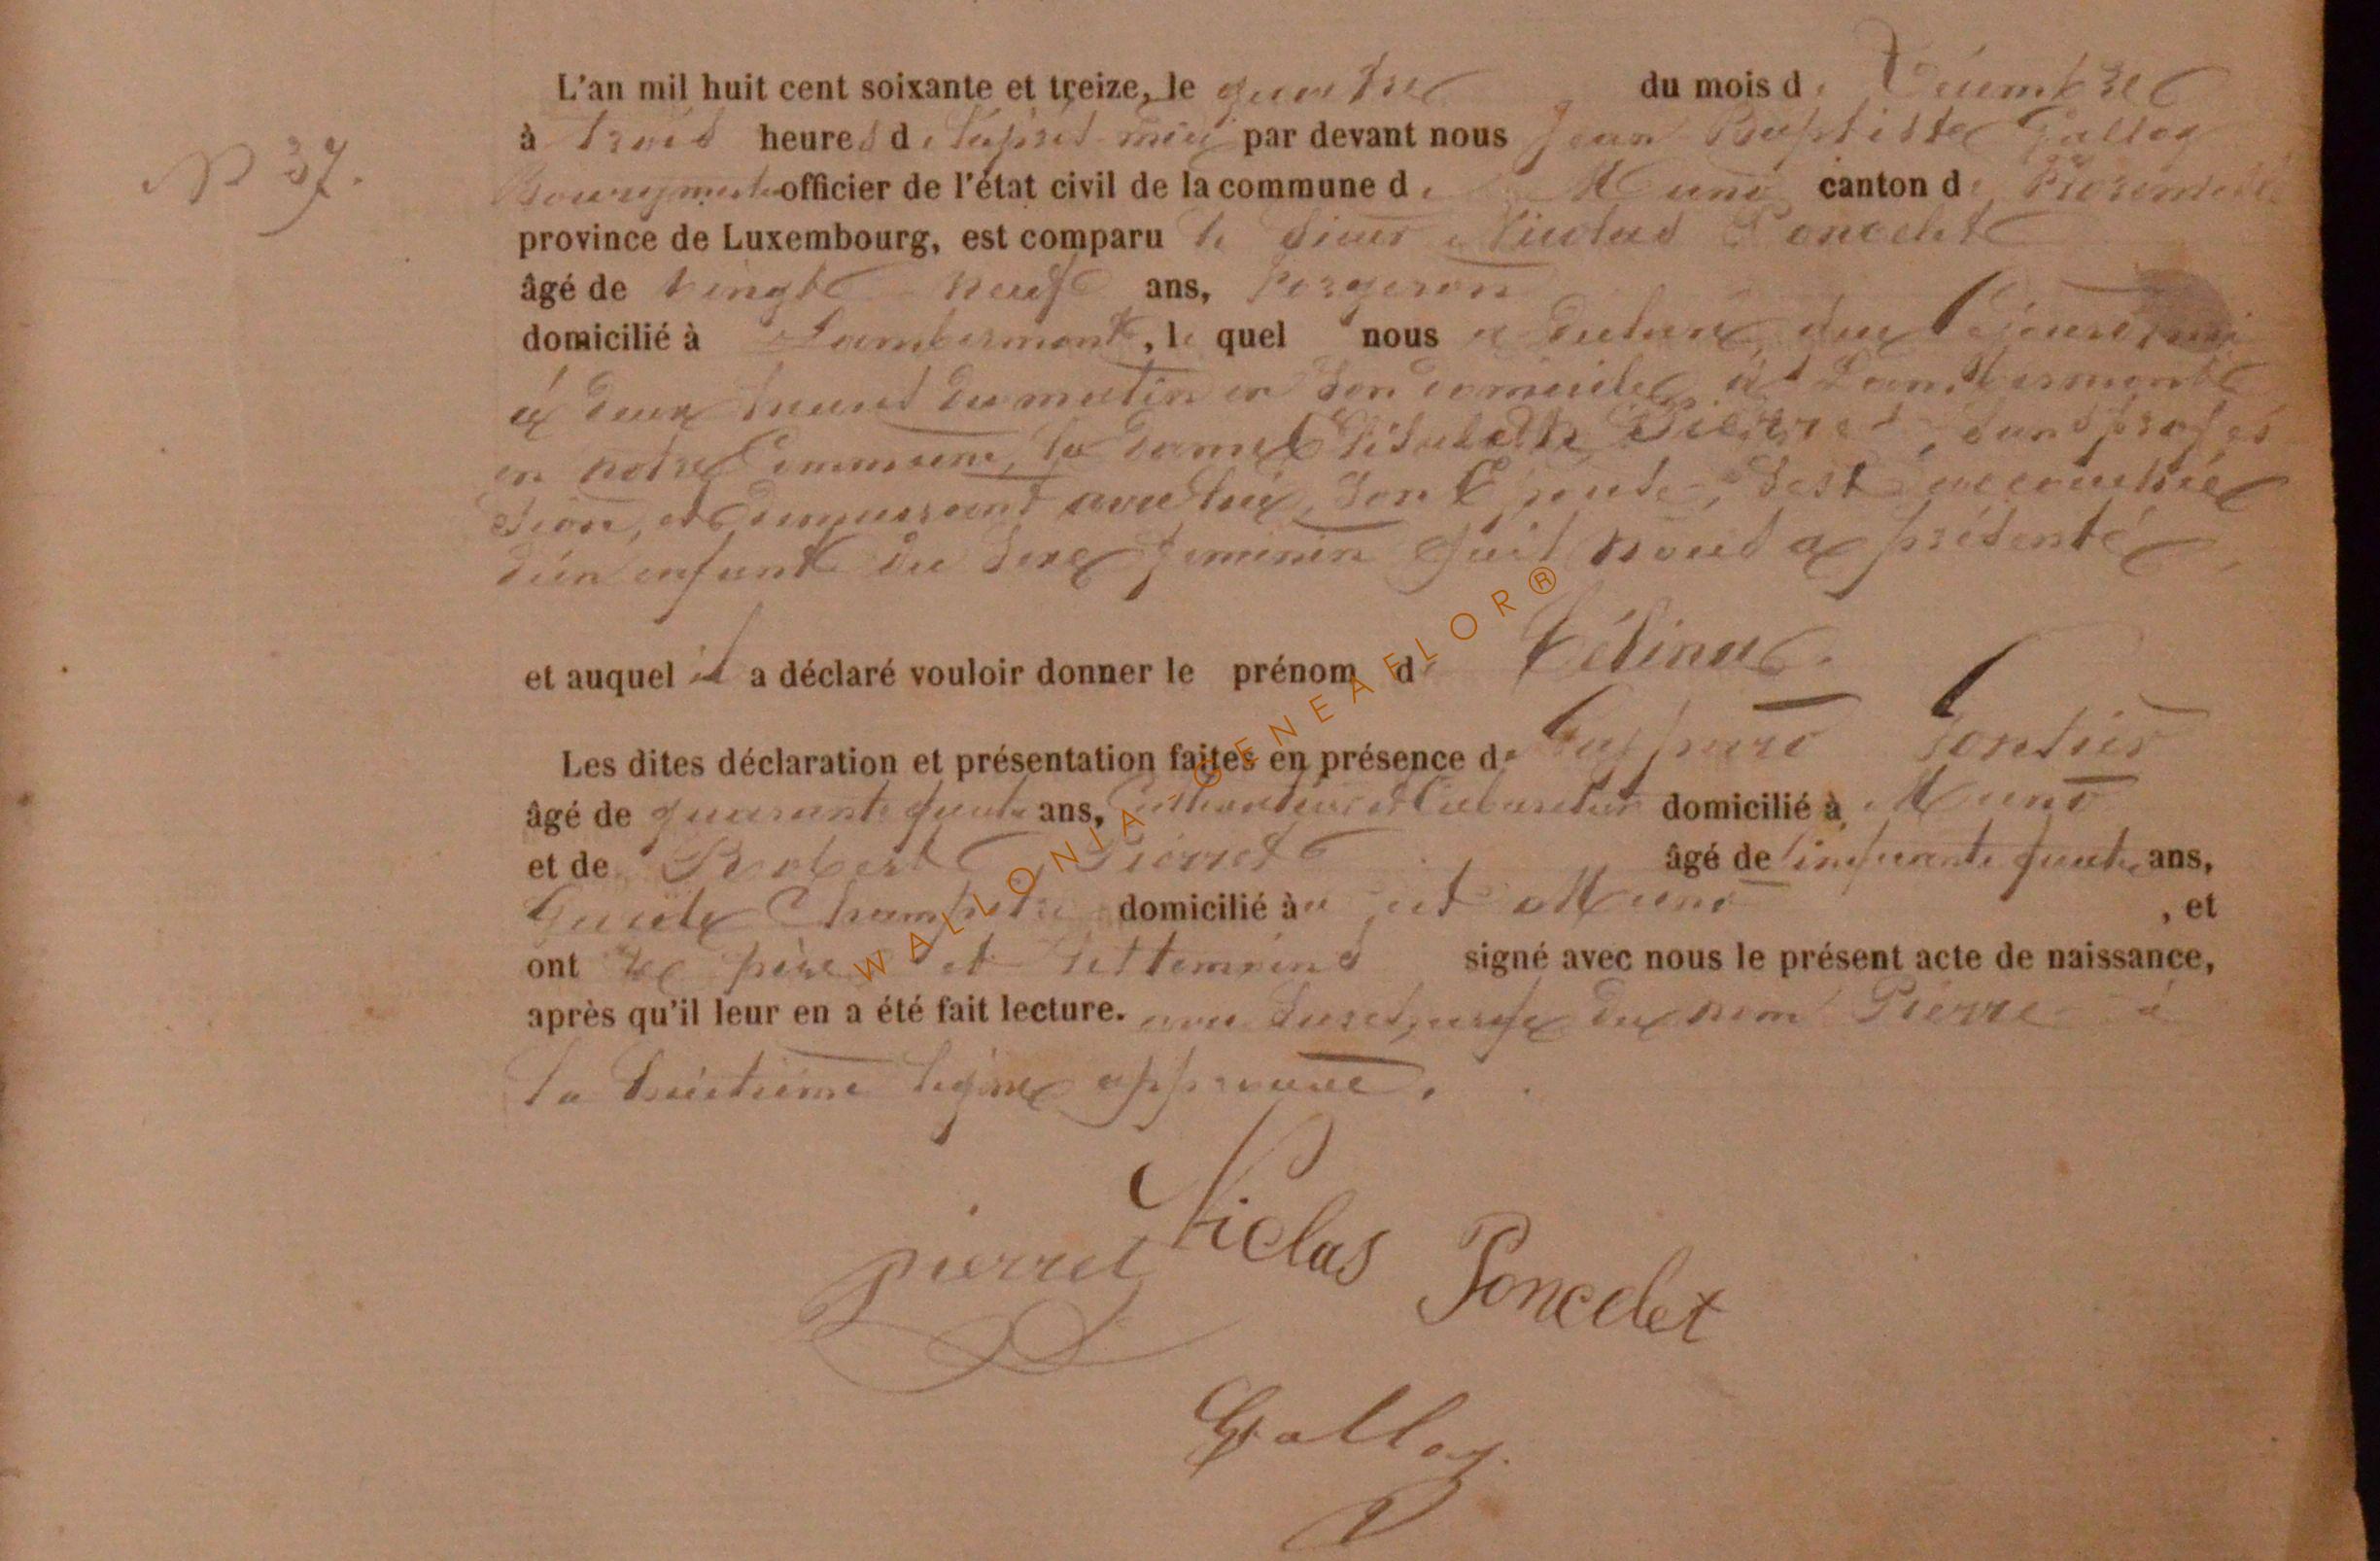 N° 37.
L'an mil huit cent soixante et treize, le quatre du mois de Décembre
à trois heures de l'après-midi par devant nous Jean Baptiste Galloy
Bourgmestre officier de l'état civil de la commune de Muno canton de
province de Luxembourg, est comparu le sieur Nicolas Poncelet
âgé de vingt neuf ans, forgeron
domicilié à Lambermont, le quel nous a déclaré que
à deux heures du matin en son domicile à Lambermont
en notre Commune, la dame Elisabeth Pierre, sans profes
sion, et demeurant avec lui, son Epouse, s'est accouchée
d'un enfant du sexe féminin qu'il nous a présenté,
et auquel il a déclaré vouloir donner le prénom de Célina.
Les dites déclaration et présentation faites en présence de Gaspard Pontier
âgé de quarante quatre ans, Cultivateur et Cabaretier domicilié à Muno
et de Robert Pierret âgé de cinquante quatre ans,
Garde Champêtre domicilié au dit Muno , et
ont le père et les témoins signé avec nous le présent acte de naissance,
après qu'il leur en a été fait lecture. avec surcharge du nom Pierre à
la huitième ligne approuvé.
Nicolas Poncelet
Pierret
Galloy
WALLONIA-GENEAFLOR®